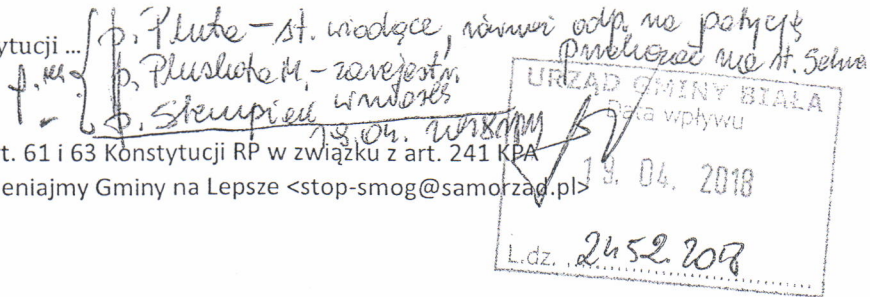 p. Pluta – st. wiodące, również odp. na petycję
przekazać na st. Sekre
ytucji ...
p. Pluskota M. – zarejestr.
wniosek
p. Stempień
19.04.2018
rt. 61 i 63 Konstytucji RP w związku z art. 241 KPA
eniajmy Gminy na Lepsze <stop-smog@samorzad.pl>
URZĄD GMINY BIAŁA
Data wpływu
19. 04. 2018
L.dz. 2452.2018